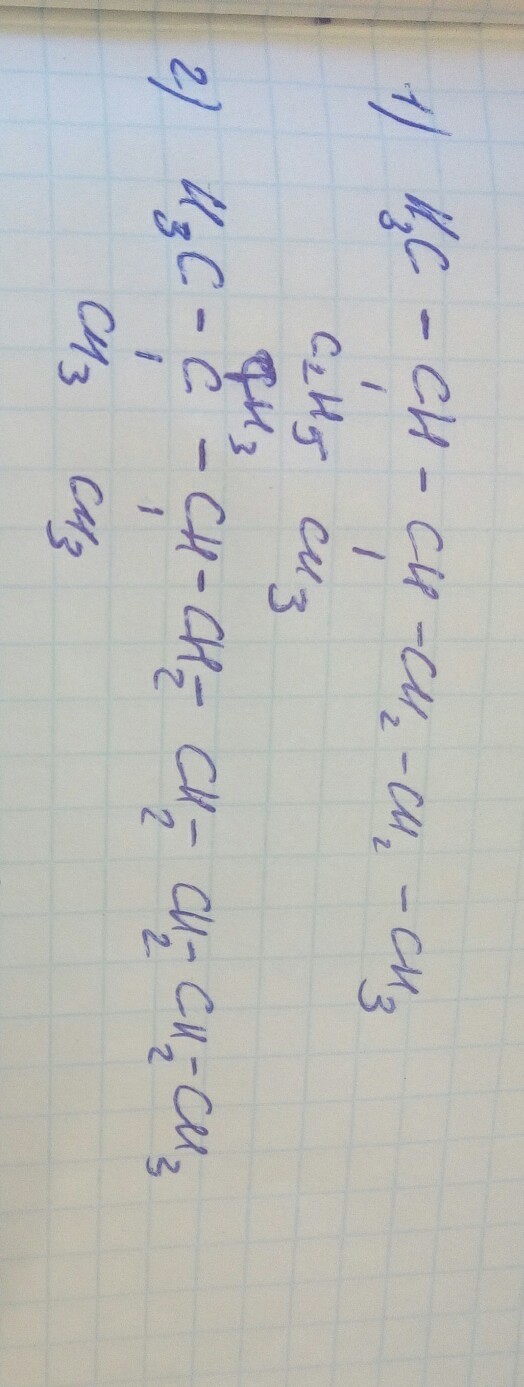 1) H₃C - CH - CH - CH₂ - CH₂ - CH₃
C₂H₅ CH₃
CH₃
2) H₃C - C - CH - CH₂ - CH₂ - CH₂ - CH₂ - CH₃
CH₃ CH₃